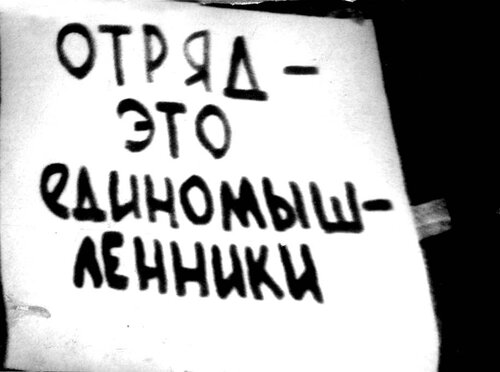 ОТРЯД –
ЭТО
единомыш-
ленники